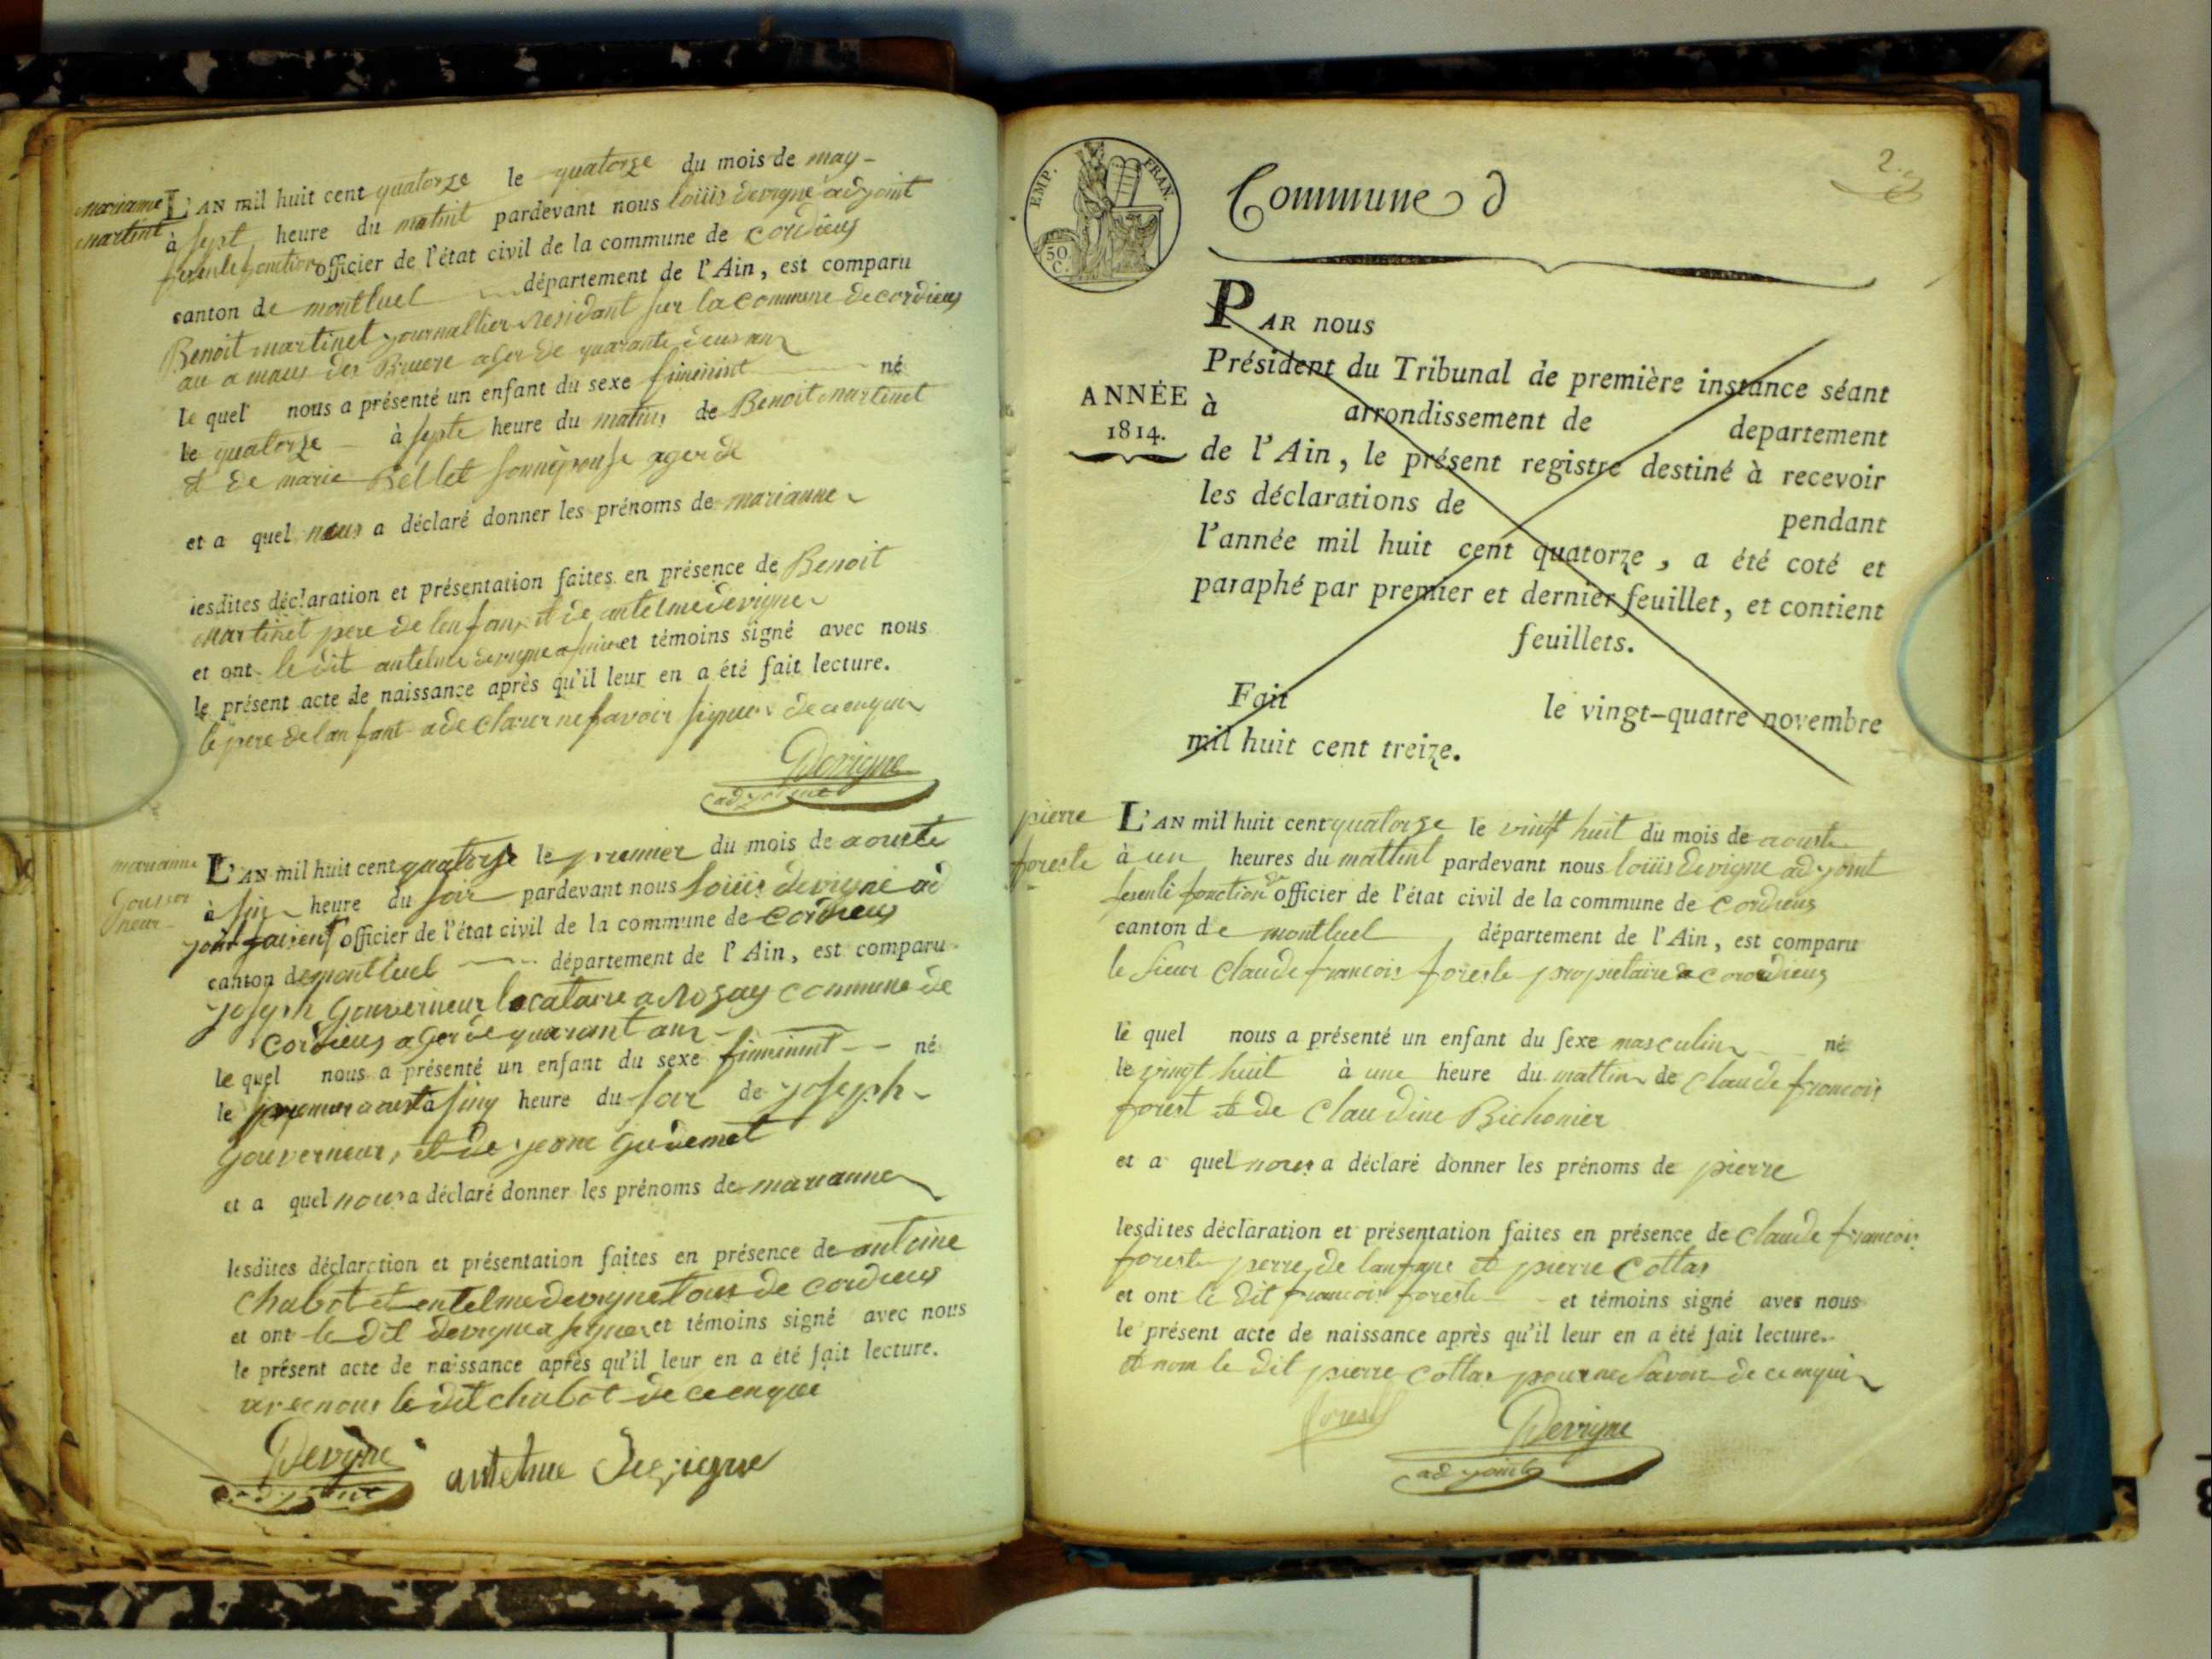 marianne
martinet
L'AN mil huit cent quatorze le quatorze du mois de may
à sept heure du matint pardevant nous loüis devigne adjoint
fesenle fonction officier de l'état civil de la commune de cordieux
canton de montluel département de l'Ain, est comparu
Benoit martinet journallier residant sur la commune de cordieux
au amaus des Bruere ager de quarante deux ans
le quel nous a présenté un enfant du sexe fiminint né
le quatorze à septe heure du matin de Benoit martinet
et de marie Bellet son nepouse ager de
et a quel nous a déclaré donner les prénoms de marianne
lesdites déclaration et présentation faites en présence de Benoit
martinet pere de lenfant et de antelme devigne
et ont le dit antelme devigne et témoins signé avec nous
le présent acte de naissance après qu'il leur en a été fait lecture.
le pere de lanfant a de clarer ne savoir signer de ce enquis
Devigne
adjoint
marianne
Gouver
neur
L'AN mil huit cent quatorze le premier du mois de aouste
à sin heure du soir pardevant nous loüis devigne ad
joint officier de l'état civil de la commune de cordieux
canton de montluel département de l'Ain, est comparu
joseph Gouverneur locataire a Rozay commune de
cordieux ager de quarant ans
le quel nous a présenté un enfant du sexe fiminint né
le premier aousta sinq heure du soir de joseph
gouverneur, et de
et a quel nous a déclaré donner les prénoms de marianne
lesdites déclaration et présentation faites en présence de antoine
chabot et entelme devigne tous de cordieux
et ont le dit devigne a signer et témoins signé avec nous
le présent acte de naissance après qu'il leur en a été fait lecture.
avec nous le dit chabot de ce enquis
Devigne
adjoint
antelme Devigne
2.
EMP. FRAN.
50
C.
Commune d
ANNÉE
1814.
PAR nous
Président du Tribunal de première instance séant
à arrondissement de departement
de l'Ain, le présent registre destiné à recevoir
les déclarations de pendant
l'année mil huit cent quatorze, a été coté et
paraphé par premier et dernier feuillet, et contient
feuillets.
Fait le vingt-quatre novembre
mil huit cent treize.
pierre
foreste
L'AN mil huit cent quatorze le vingt huit du mois de aouste
à un heures du mattint pardevant nous loüis devigne adjoint
fesenle fonction de officier de l'état civil de la commune de cordieux
canton de montluel département de l'Ain, est comparu
le sieur claude francois foreste propietaire a corodieux
le quel nous a présenté un enfant du sexe masculin né
le vingt huit à une heure du mattin de claude francois
forest et de claudine Bichonier
et a quel nous a déclaré donner les prénoms de pierre
lesdites déclaration et présentation faites en présence de claude francois
foreste perre de lanfant et pierre cottas
et ont le dit francois foreste et témoins signé avec nous
le présent acte de naissance après qu'il leur en a été fait lecture.
et nom le dit pierre cottas pour ne savoir de ce enquis
forest
Devigne
adjoint